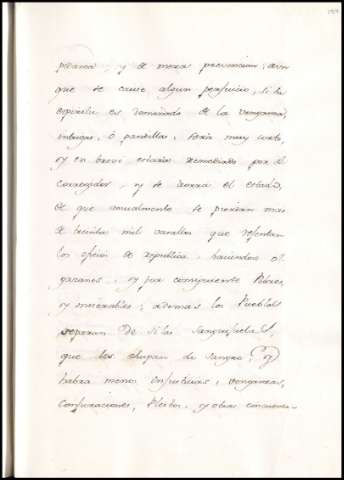 planca, y de mera precaucion, aun
que se cause algun perjuicio, si la
es de la venganza,
intrigas, ó pandillas, será muy corto,
y en breve estarán remediados por el
Corregidor, y se verá el estado,
de que anualmente se pierdan mas
de treinta mil varallos que
los oficios de republica, haciendose ol
gazanes, y por consiguiente Pobres,
y miserables; ademas los Pueblos
separan De si las Sanguijuelas,
que les chupan la sangre; y
habra menos injusticias, venganzas,
Conjuraciones, Pleitos, y otras